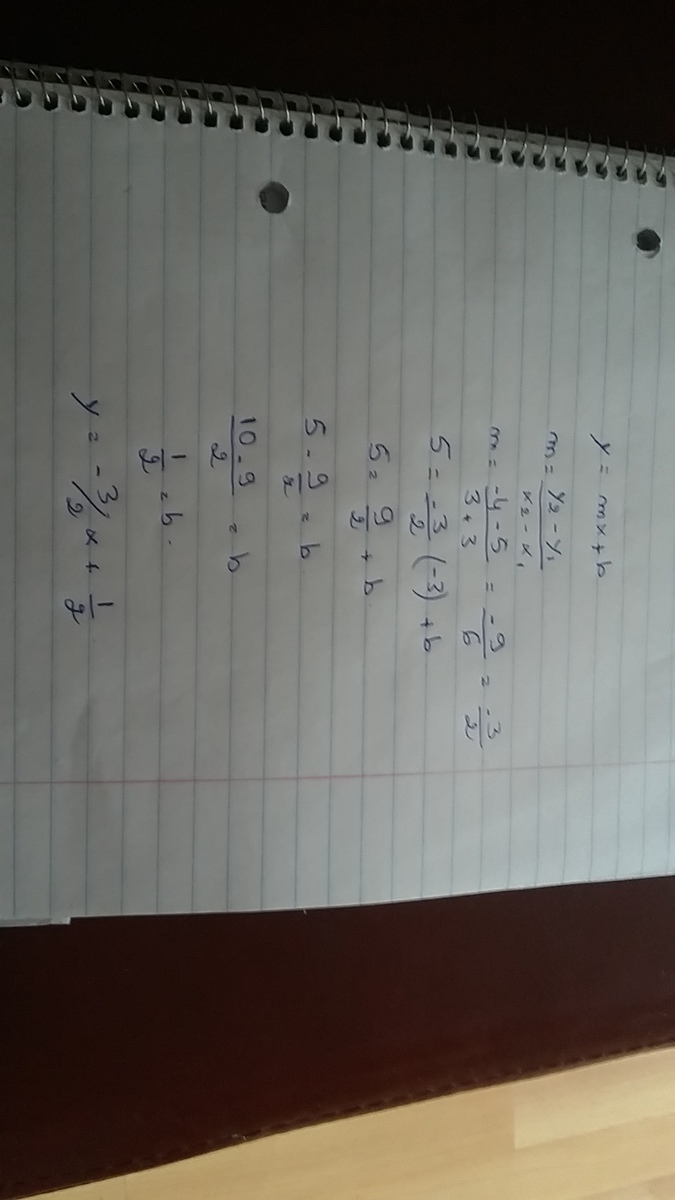 y = mx + b
m = y₂ - y₁ / x₂ - x₁
m = -4 - 5 / 3 + 3 = -9 / 6 = -3 / 2
5 = -3 / 2 (-3) + b
5 = 9 / 2 + b
5 - 9 / 2 = b
10 - 9 / 2 = b
1 / 2 = b.
y = - 3/2 x + 1 / 2